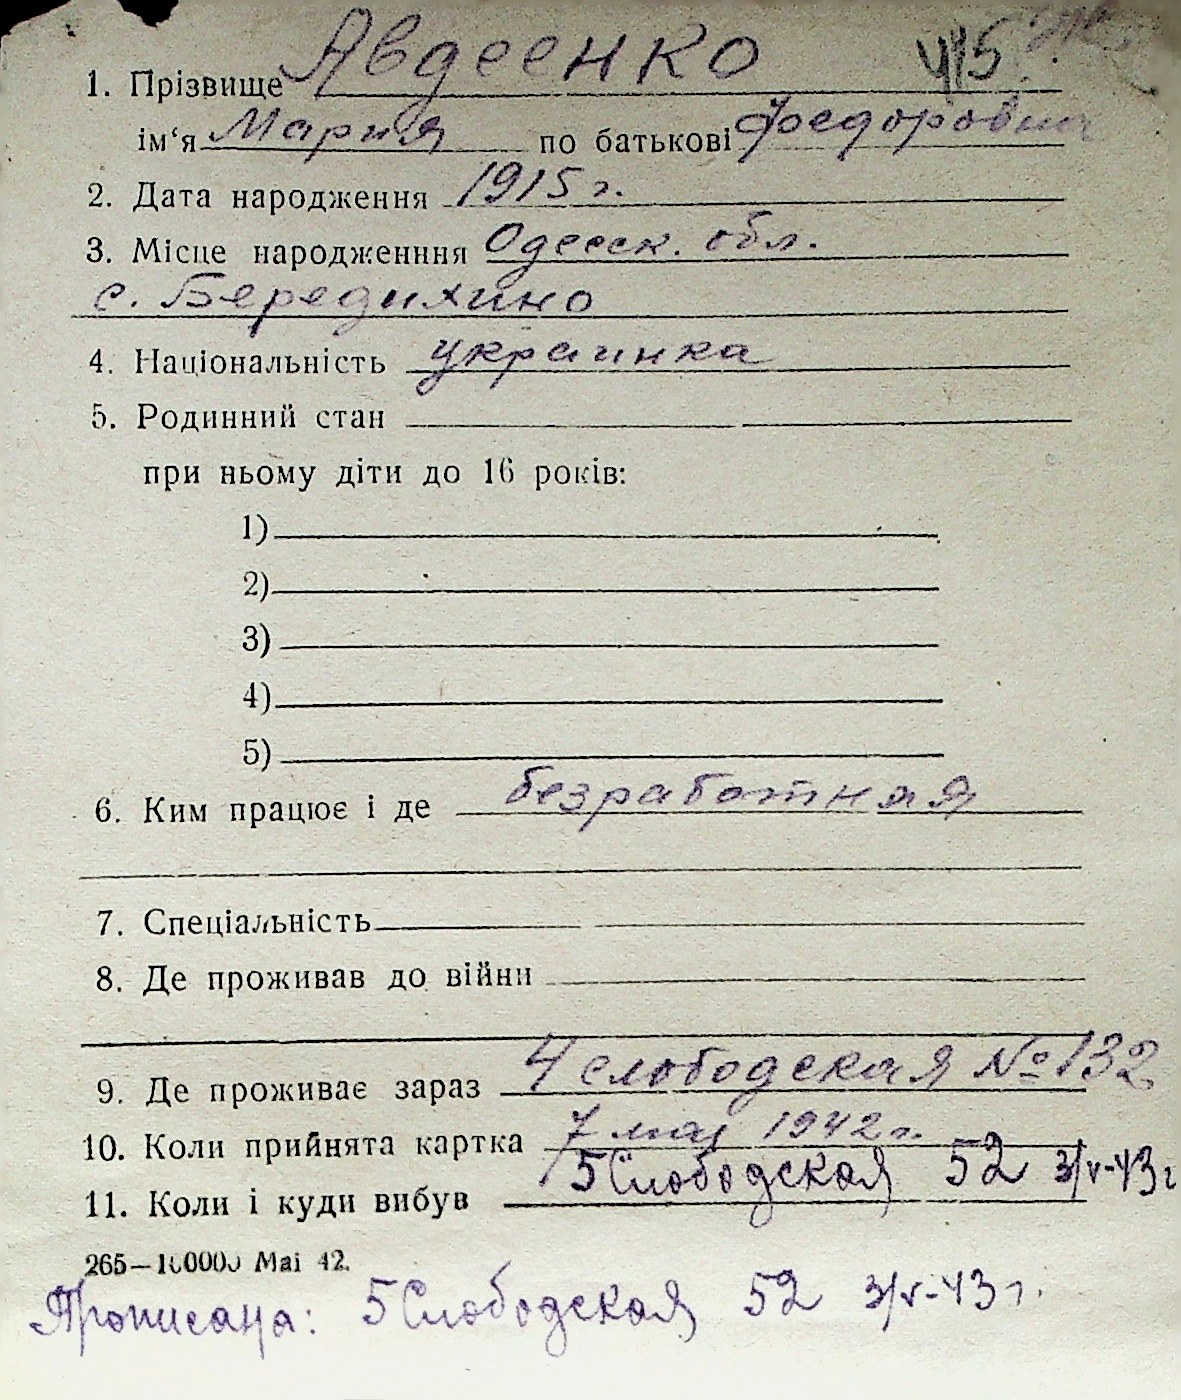 1. Прізвище Авдеенко 4/15
ім‘я Мария по батькові Федоровна
2. Дата народження 1915 г.
3. Місце народженння Одесск. обл.
с. Бередихино
4. Національність украинка
5. Родинний стан
при ньому діти до 16 років:
1)
2)
3)
4)
5)
6. Ким працює і де безработная
7. Спеціальність
8. Де проживав до війни
9. Де проживає зараз 4 слободская № 132
10. Коли прийнята картка 7 мая 1942 г.
11. Коли і куди вибув 5 Слободская 52 3/V-43 г
265—100000 Mai 42.
Прописана: 5 Слободская 52 3/V-43 г.